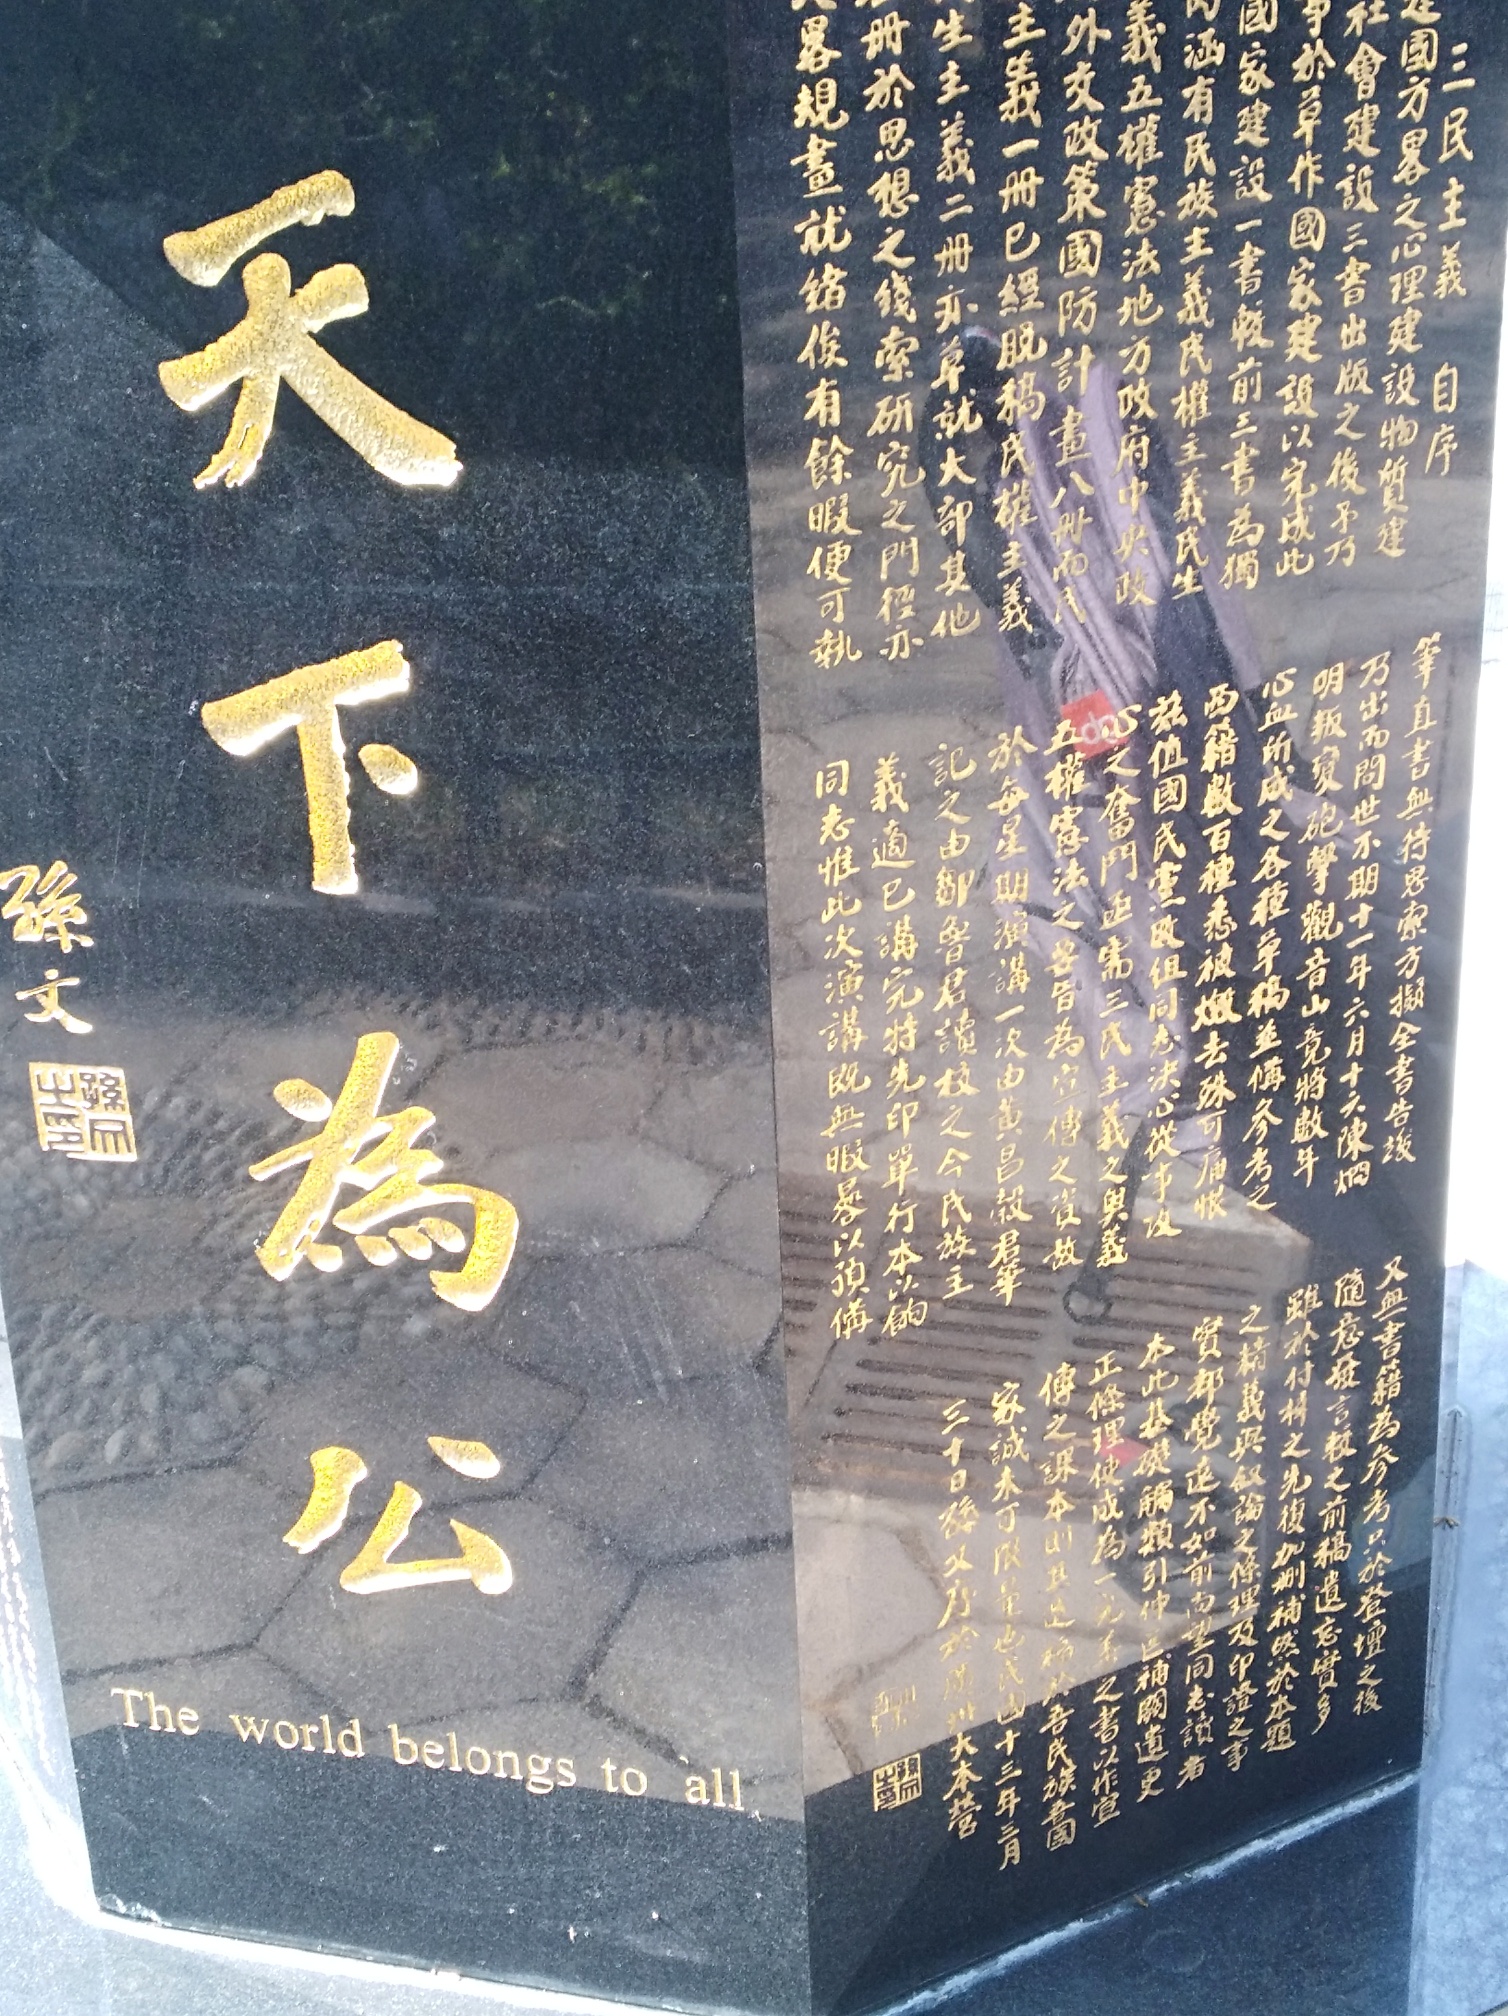 天下為公
孫文
孫文之印
The world belongs to all
三民主義 自序
建國方畧之心理建設物質建
社會建設三書出版之後予乃
事於草作國家建設以完成此
國家建設一書較前三書為獨
內涵有民族主義民權主義民生
義五權憲法地方政府中央政
外交政策國防計畫八冊而民
主義一冊已經脫稿民權主義
生主義二冊亦草就大部其他
冊於思想之綫索研究之門徑亦
畧規畫就緒俟有餘暇便可執
筆直書無待思索方擬全書告竣
乃出而問世不期十一年六月十六陳烱
明叛變砲擊觀音山竟將數年
心血所成之各種草稿並備參考之
西籍數百種悉被燬去殊可痛恨
茲值國民黨改組同志決心從事攻
心之奮鬥亟需三民主義之奧義
五權憲法之要旨為宣傳之資故
於每星期演講一次由黃昌穀君筆
記之由鄒魯君讀校之今民族主
義適已講完特先印單行本以餉
同志惟此次演講既無暇晷以預備
又無書籍為參考只於登壇之後
隨意發言較之前稿遺忘實多
雖於付梓之先復加刪補然於本題
之精義與叙論之條理及印證之事
實都覺遠不如前尚望同志讀者
本此基礎觸類引伸匡補闕遺更
正條理使成為一完善之書以作宣
傳之課本則其造福於吾民族吾國
家誠未可限量也民國十三年三月
三十日孫文序於廣州大本營